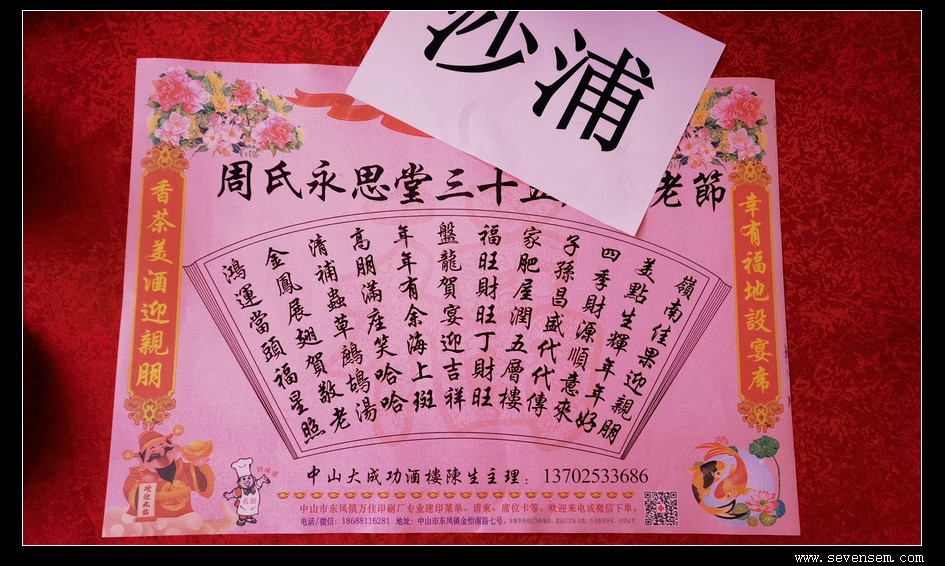 沙浦
周氏永思堂三十五
老節
幸有福地設宴席
嶺南佳果迎親朋
美點生輝年年好
四季財源順意來
子孫昌盛代代傳
家肥屋潤五層樓
福旺財旺丁財旺
盤龍賀宴迎吉祥
年年有余海上斑
高朋滿座笑哈哈
清補蟲草鷓鴣湯
金鳳展翅賀敬老
鴻運當頭福星照
香茶美酒迎親朋
中山大成功酒樓陳生主理：13702533686
中山市东凤镇万佳印刷厂专业速印菜单、请柬、席位卡等。欢迎来电或微信下单。
电话/微信：18688116281 地址：中山市东凤镇金怡南路七号。
www.sevensem.com